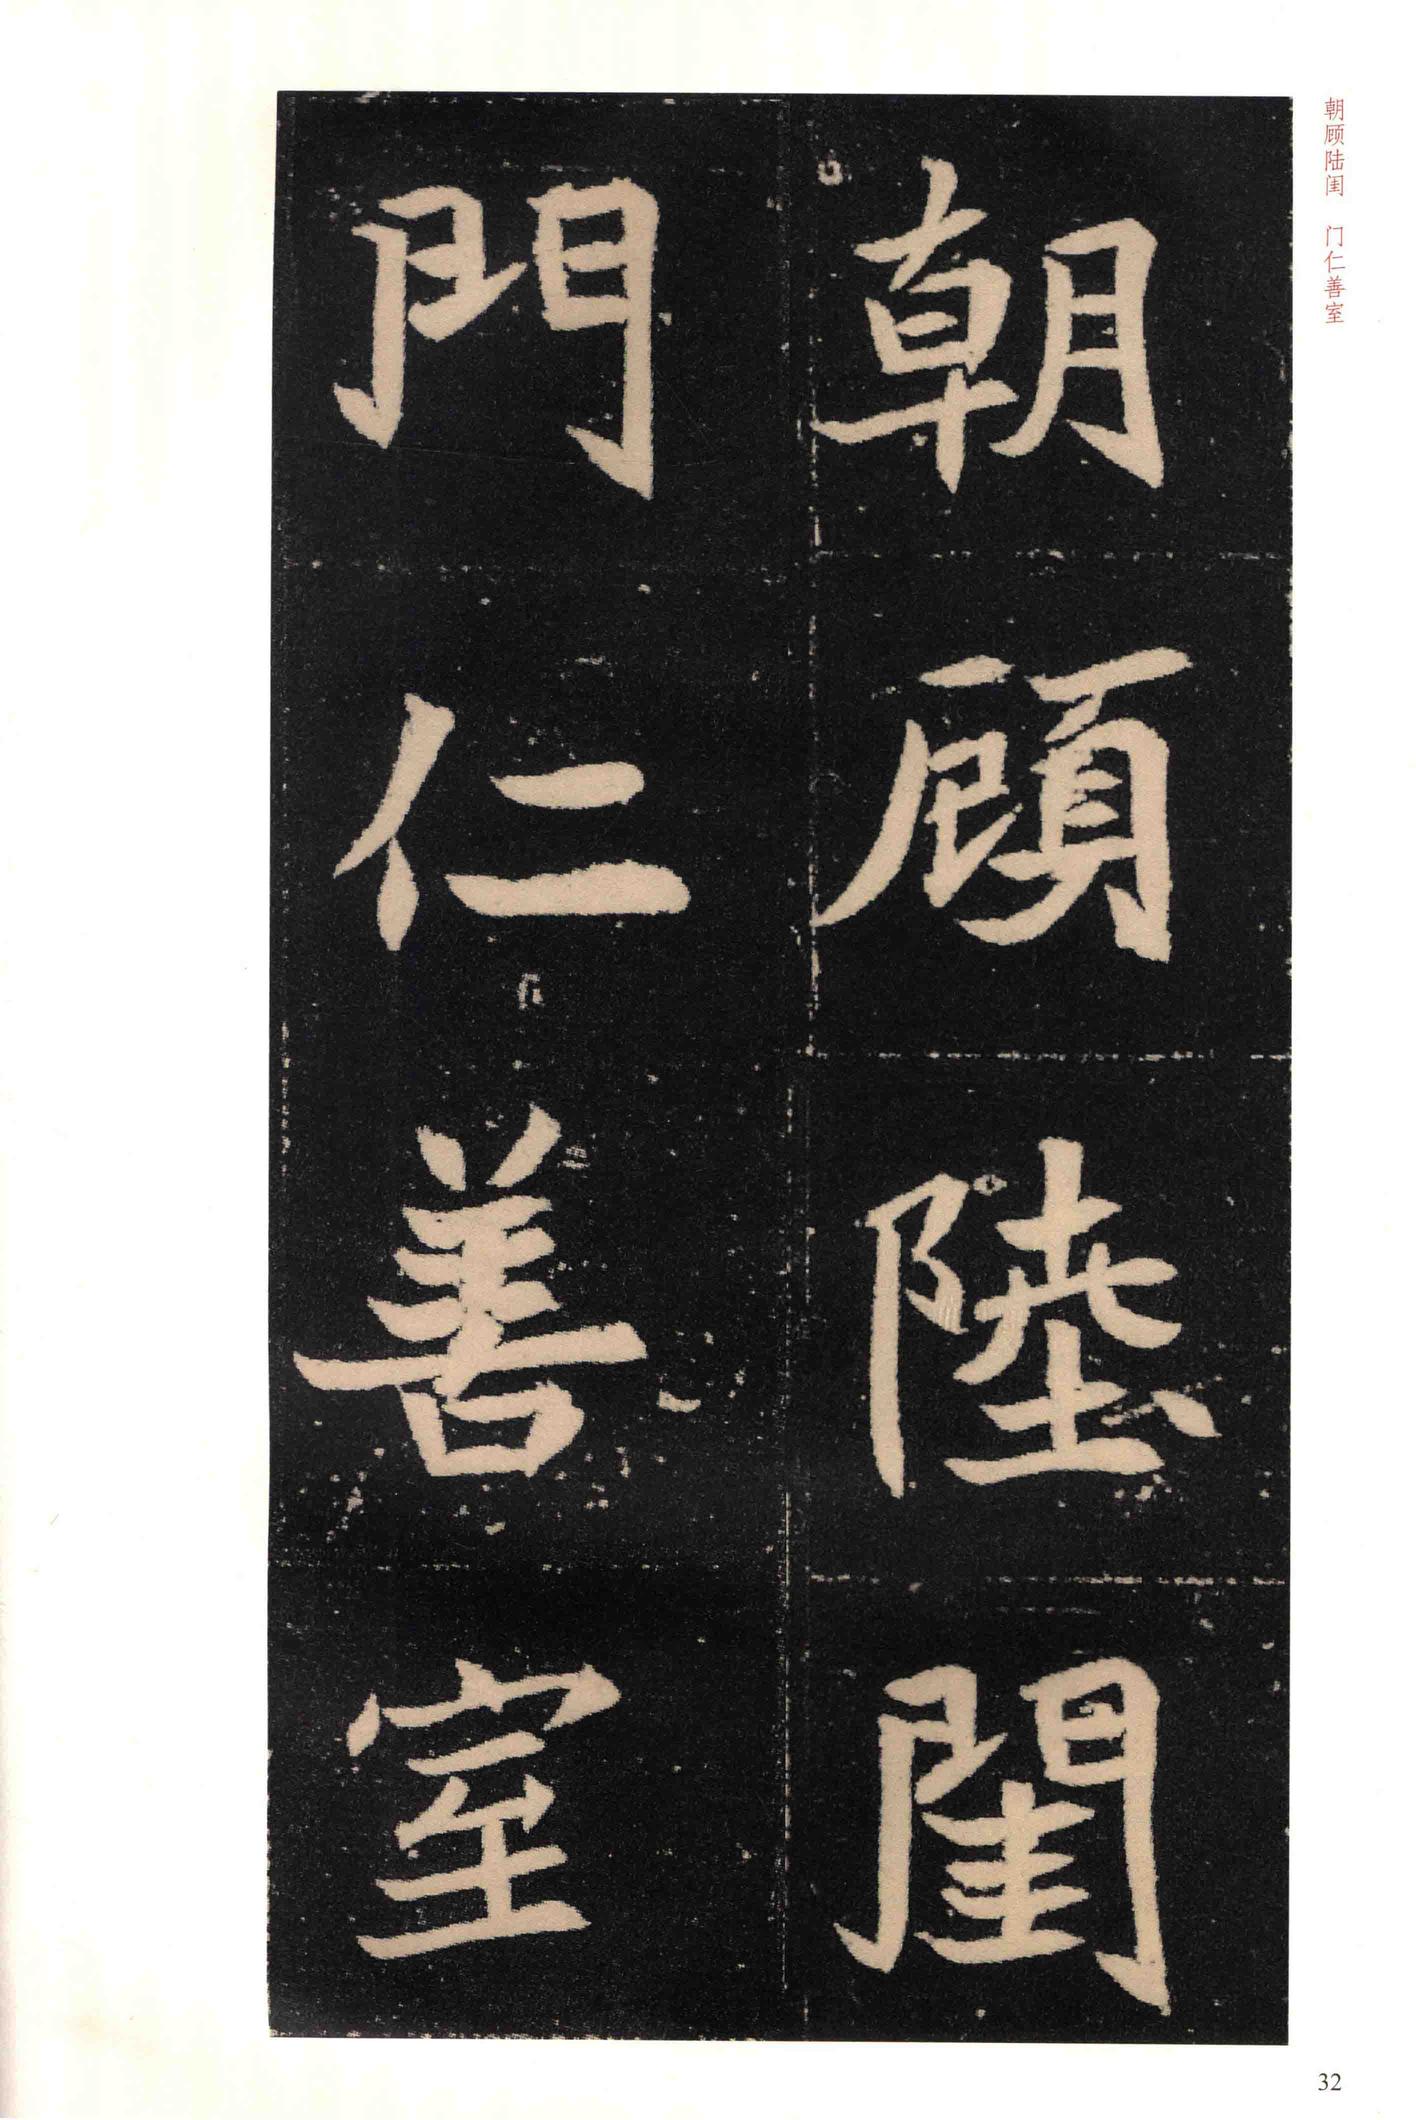 朝顾陆闺　门仁善室
朝顧陸閨
門仁善室
32